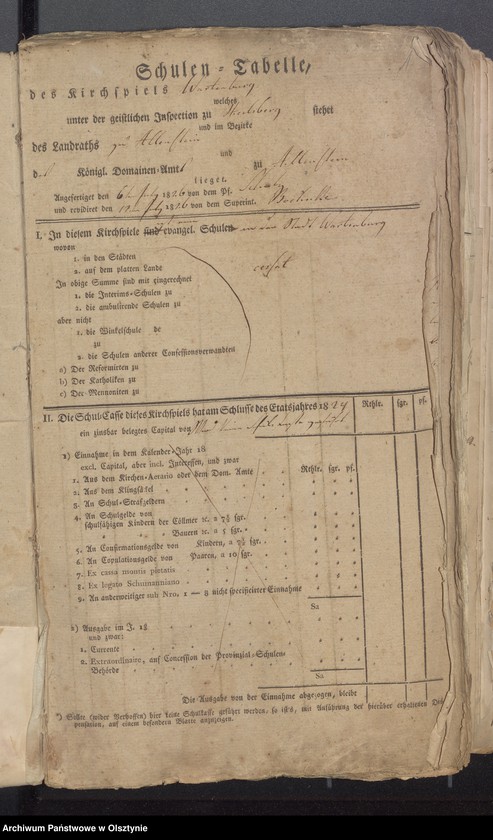 Schulen-Tabelle,
des Kirchspiels Wartenburg
welches
unter der geistlichen Inspection zu stehet
und im Bezirke
des Landraths zu Allenstein
und
d Königl. Domainen-Amts zu Allenstein
lieget.
Angefertiget den 6ten July 1826 von dem Pf.
und revidiret den 1826 von dem Superint.
I. In diesem Kirchspiele sind evangel. Schulen Stadt Wartenburg
wovon
1. in den Städten
2. auf dem platten Lande cessat
In obige Summe sind mit eingerechnet
1. die Interims-Schulen zu
2. die ambulirende Schulen zu
aber nicht
1. die Winkelschule de
zu
2. die Schulen anderer Confessionsverwandten
a) Der Reformirten zu
b) Der Katholiken zu
c) Der Mennoniten zu
II. Die Schul-Casse dieses Kirchspiels hat am Schlusse des Etatsjahres 1824 Rthlr. sgr. pf.
ein zinsbar belegtes Capital von
1) Einnahme in dem Kalender-Jahr 18
excl. Capital, aber incl. Interessen, und zwar
1. Aus dem Kirchen-Aerario oder dem Dom. Amte Rthlr. sgr. pf.
2. Aus dem Klingsäkel
3. An Schul-Strafgeldern
4. An Schulgelde von
schulfähigen Kindern der Cöllmer ꝛc. a 7½ sgr.
Bauern ꝛc. a 5 sgr.
5. An Confirmationsgelde von Kindern, a 7½ sgr.
6. An Copulationsgelde von Paaren, a 10 sgr.
7. Ex cassa montis pietatis
8. Ex legato Schimanniano
9. An anderweitiger sub Nro. 1 — 8 nicht specificirter Einnahme
Sa
2) Ausgabe im J. 18
und zwar:
1. Currente
2. Extraordinaire, auf Concession der Provinzial-Schulen-
Behörde
Sa
Die Ausgabe von der Einnahme abgezogen, bleibt
*) Sollte (wider Verhoffen) hier keine Schulkasse geführet werden, so ist's, mit Anführung der hierüber erhaltenen Dis-
pensation, auf einem besondern Blatte anzuzeigen.
Archiwum Państwowe w Olsztynie